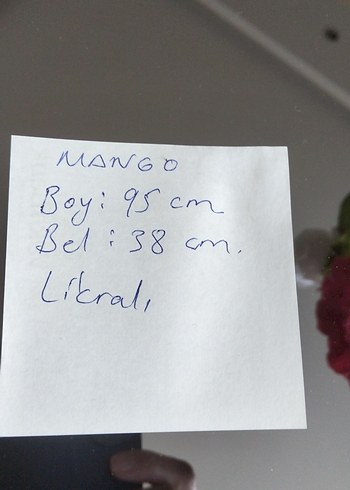 MANGO
Boy: 95 cm
Bel: 38 cm.
Likralı